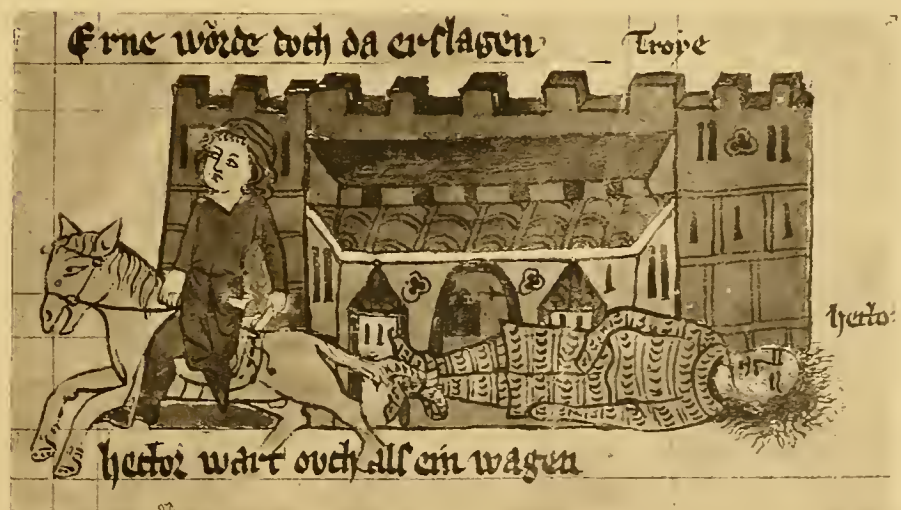 Erne wörde doch da erslagen
Troye
hector
hector wart ovch als ein wagen